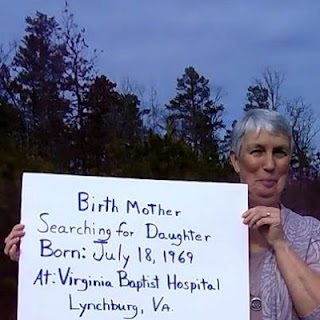 Birth Mother
Searching for Daughter
Born: July 18, 1969
At: Virginia Baptist Hospital
Lynchburg, VA.